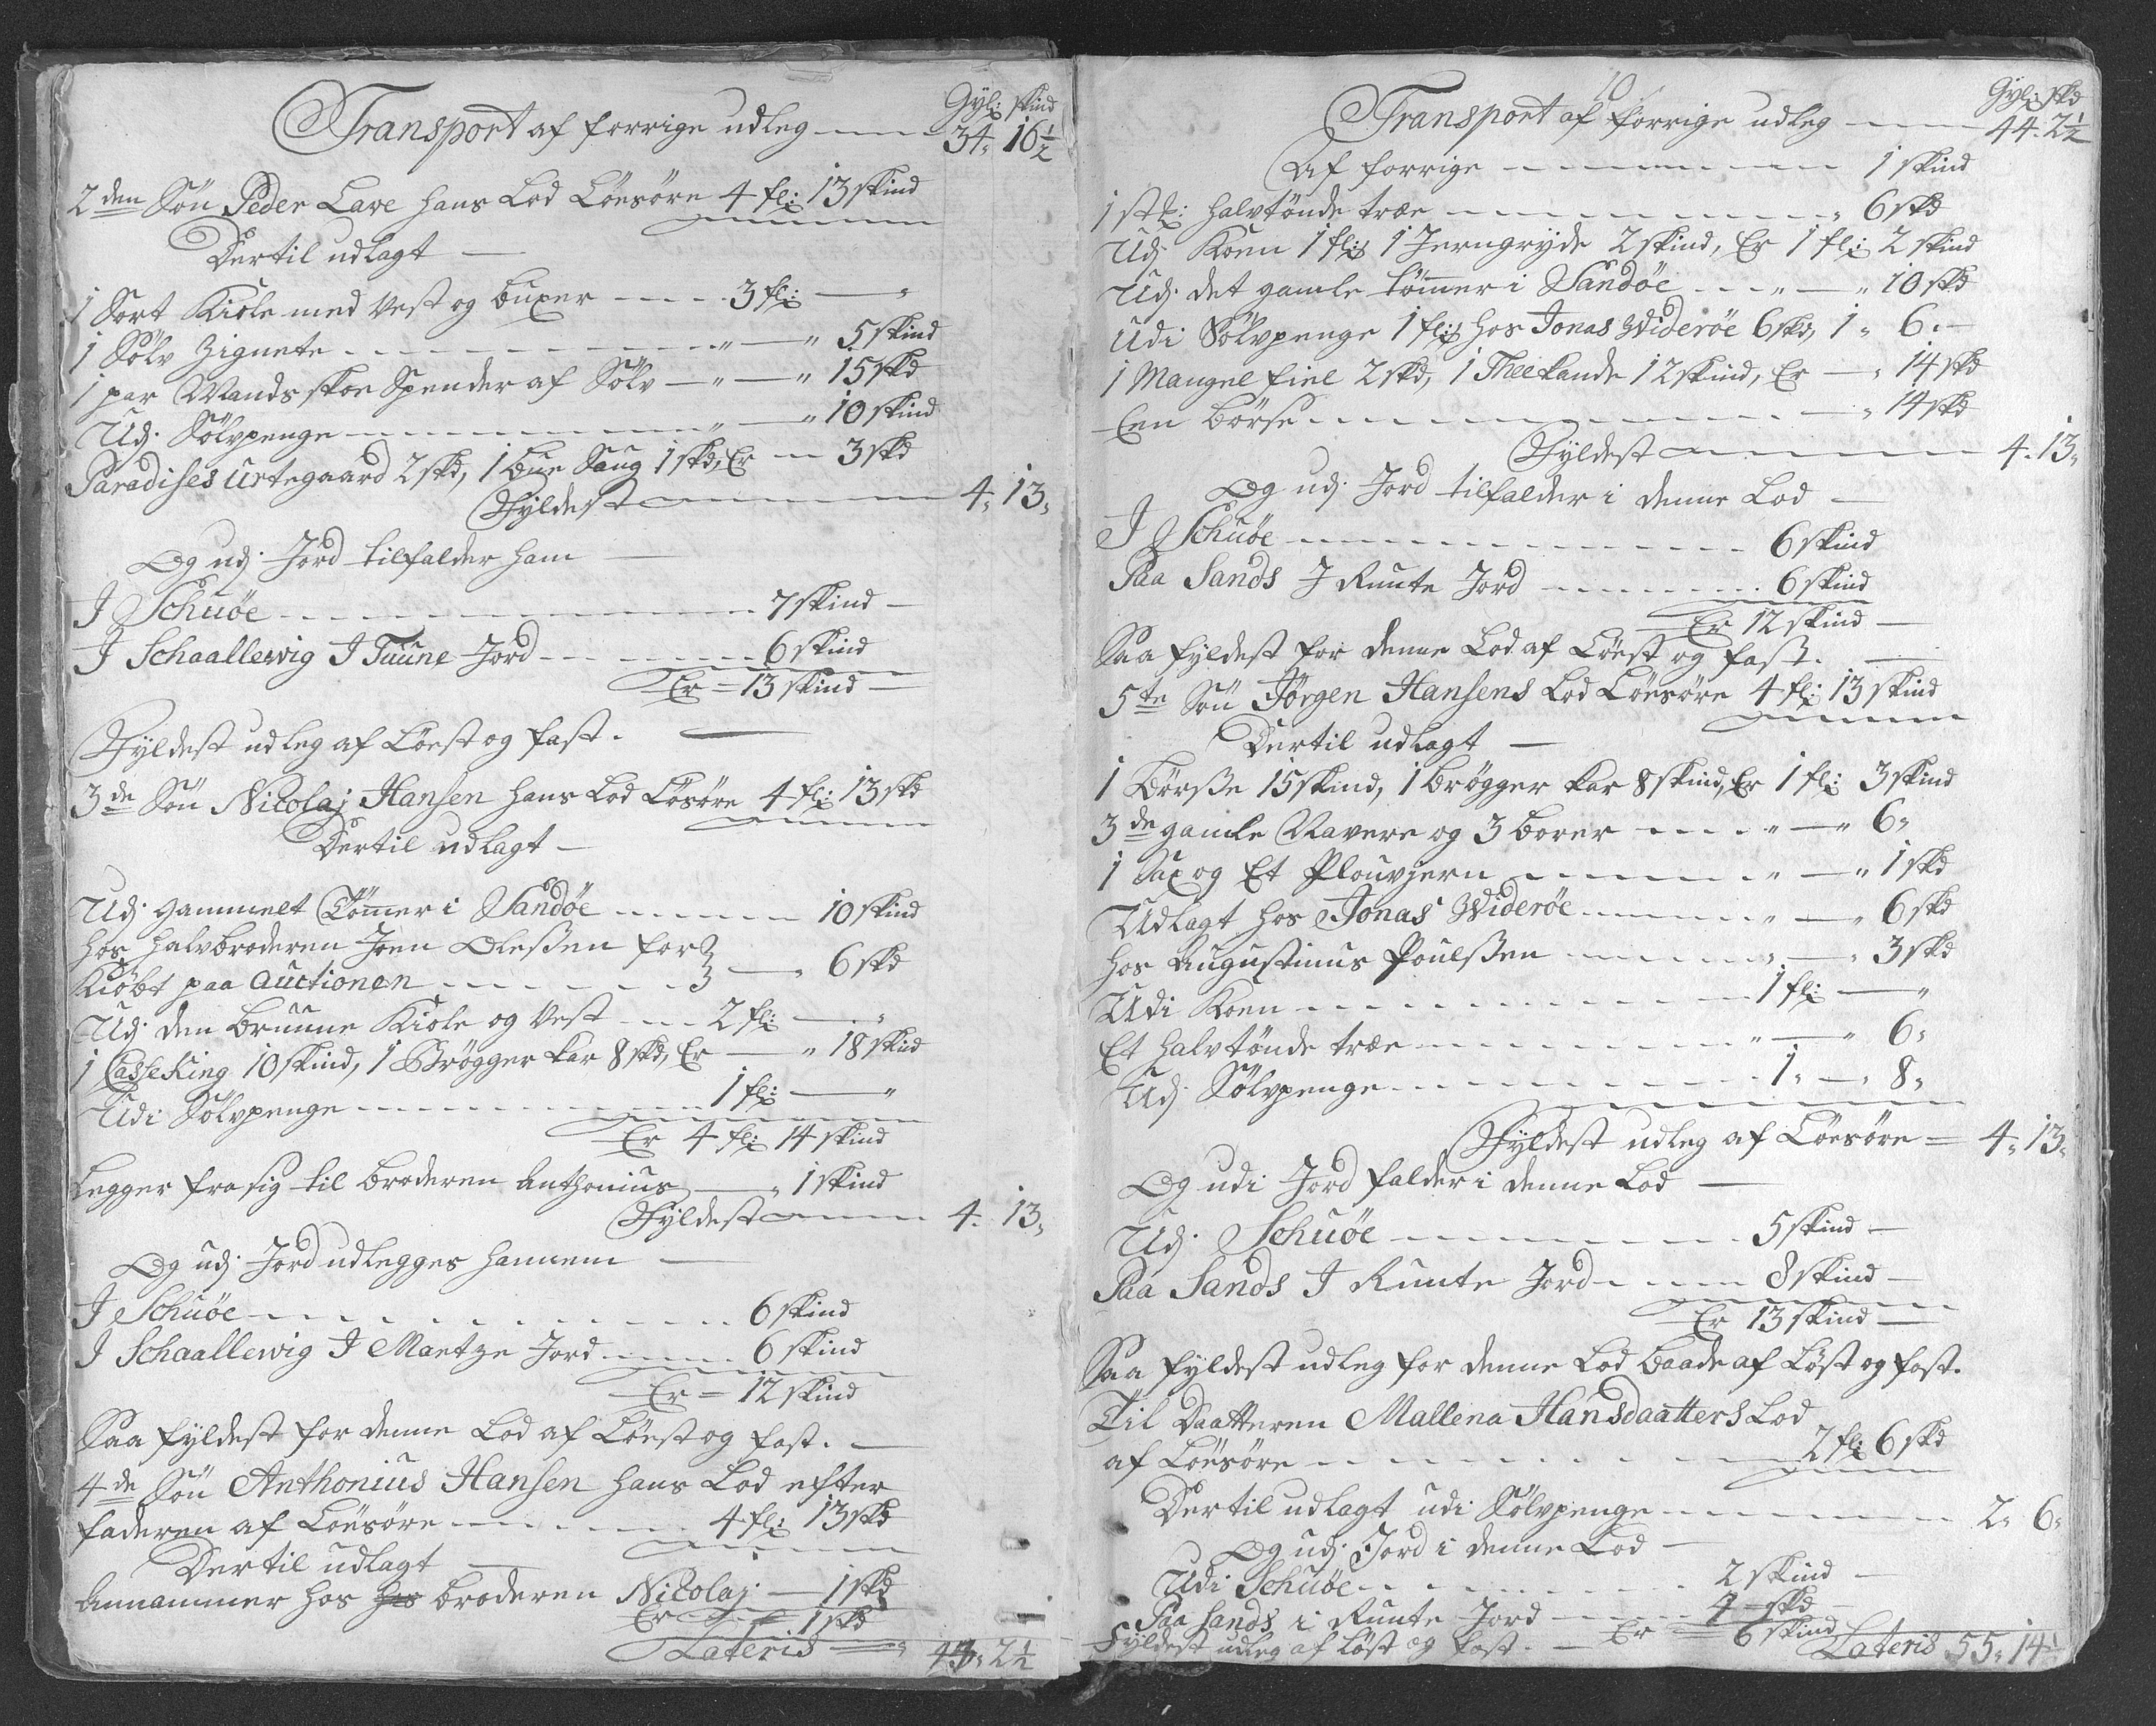 Gyl: skind
Transport af forrige udleg 34. 16½
2den Søn Peder Lave hans Lod Löesöre 4 fl: 13 skind
Dertil udlagt
1 Sort Kiole med Vest og Buxer 3 fl: "
1 Sölv Zignete " " 5 skind
1 par Mands skoe Spender af Sölv " " 15 skd
Udj Sölvpenge " " 10 skind
Paradises Urtegaard 2 skd, 1 Bue Saug 1 skd, Er 3 skd
Fyldest 4. 13.
Og udj Jord tilfalder ham
J Schuöe 7 skind
J Schaallewig J Tuune Jord 6 skind
Er = 13 skind
Fyldest udleg af Löest og fast.
3de Søn Nicolaj Hansen hans Lod Lösöre 4 fl: 13 skd
Dertil udlagt
Udj gammelt Tömmer i Sandöe 10 skind
hos halvbroderen Joen Olessen for
Kiöbt paa Auctionen " 6 skd
Udj den bruune Kiole og Vest 2 fl: "
1 Casseking 10 skind, 1 Brögger kar 8 skd, Er " 18 skind
Udi Sölvpenge 1 fl: "
Er 4 fl: 14 skind
Legger fra sig til broderen Anthonius " 1 skind
Fyldest 4. 13.
Og udj Jord udlegges hannem
J Schuöe 6 skind
J Schaallewig J Mantze Jord 6 skind
Er = 12 skind
Saa fyldest for denne Lod af Löest og fast.
4de Søn Anthonius Hansen hans Lod efter
faderen af Löesöre 4 fl: 13 skd
Dertil udlagt
Annammer hos hos broderen Nicolaj 1 skd
Er 1 skd
Lateris 44. 2½
10
Gyl: skd
Transport af forrige udleg 44. 2½
Af forrige 1 skind
1 stk: halvtönde træe " 6 skd
Udj Koen 1 fl: 1 Jerngryde 2 skind, Er 1 fl: 2 skind
Udj det gamle tömmer i Sandöe " " 10 skd
Udi Sölvpenge 1 fl: hos Jonas Wideröe 6 skd, 1 " 6.
1 Mangel fiel 2 skd, 1 Theekande 12 skind, Er " 14 skd
Een Börse " 14 skd
Fyldest 4. 13.
Og udj Jord tilfalder i denne Lod
J Schuöe 6 skind
Paa Sands J Ruute Jord 6 skind
Er 12 skind
Saa fyldest for denne Lod af Löest og fast.
5te Søn Jörgen Hansens Lod Löesöre 4 fl: 13 skind
Dertil udlagt
1 Börsse 15 skind, 1 brögger kar 8 skind, Er 1 fl: 3 skind
3de gamle Navere og 3 borer " " 6.
1 Sax og Et Plouvjern " " 1 skd
Udlagt hos Jonas Wideröe " " 6 skd
hos Augustinus Poulssen " " 3 skd
Udi Koen 1 fl: "
Et halvtönde træe " " 6.
Udj Sölvpenge 1. 8.
Fyldest udleg af Löesöre = 4. 13.
Og udi Jord falder i denne Lod
Udj Schuöe 5 skind
Paa Sands J Ruute Jord 8 skind
Er 13 skind
Saa fyldest udleg for denne Lod baade af Löst og fast.
Til Daatteren Mallena Hansdaatters Lod
af Löesöre 2 fl: 6 skd
Dertil udlagt udi Sölvpenge 2. 6.
Og udj Jord i denne Lod
Udi Schuöe 2 skind
Paa Sands i Ruute Jord 4 skd
Fyldest udleg af Löst og fast. Er 6 skind
Lateris 55. 14½